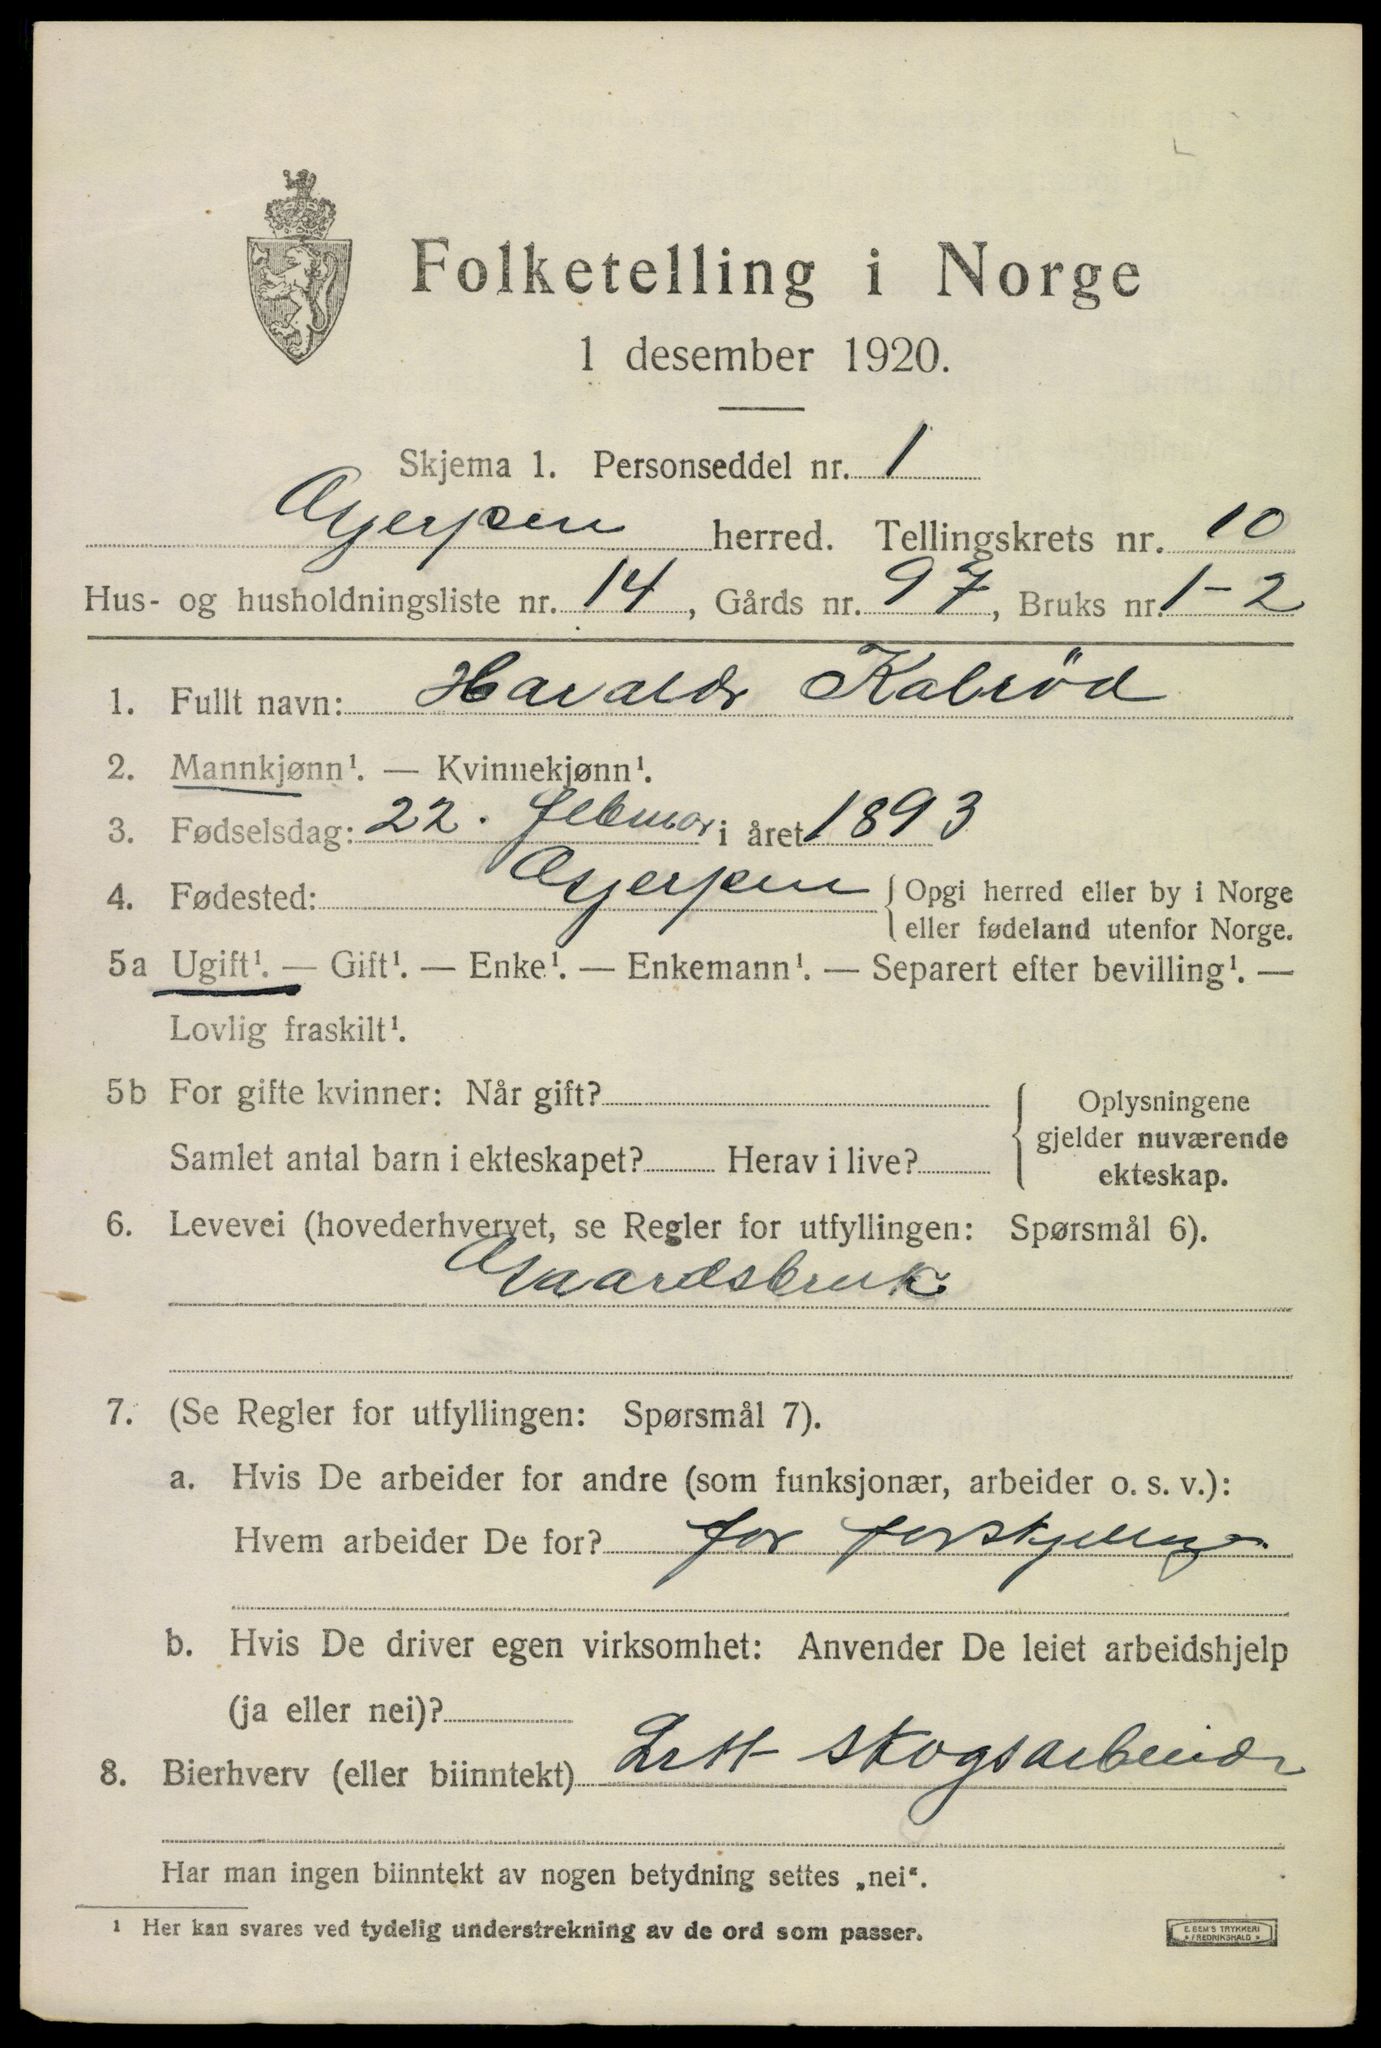 Folketelling i Norge
1 desember 1920.
Skjema 1. Personseddel nr. 1
Gjerpen herred. Tellingskrets nr. 10
Hus- og husholdningsliste nr. 14, Gårds nr. 97, Bruks nr. 1-2
1. Fullt navn: Harald Kalrød
2. Mannkjønn¹. — Kvinnekjønn¹.
3. Fødselsdag: 22. februar i året 1893
4. Fødested: Gjerpen { Opgi herred eller by i Norge
eller fødeland utenfor Norge.
5a Ugift¹. — Gift¹. — Enke¹. — Enkemann¹. — Separert efter bevilling¹. —
Lovlig fraskilt¹.
5b For gifte kvinner: Når gift?
Samlet antal barn i ekteskapet? Herav i live?
{ Oplysningene
gjelder nuværende
ekteskap.
6. Levevei (hovederhvervet, se Regler for utfyllingen: Spørsmål 6).
Gaardsbruk
7. (Se Regler for utfyllingen: Spørsmål 7).
a. Hvis De arbeider for andre (som funksjonær, arbeider o. s. v.):
Hvem arbeider De for? for
b. Hvis De driver egen virksomhet: Anvender De leiet arbeidshjelp
(ja eller nei)?
8. Bierhverv (eller biinntekt) Litt skogsarbeide
Har man ingen biinntekt av nogen betydning settes „nei“.
¹ Her kan svares ved tydelig understrekning av de ord som passer.
E. SEM'S TRYKKERI
FREDRIKSHALD